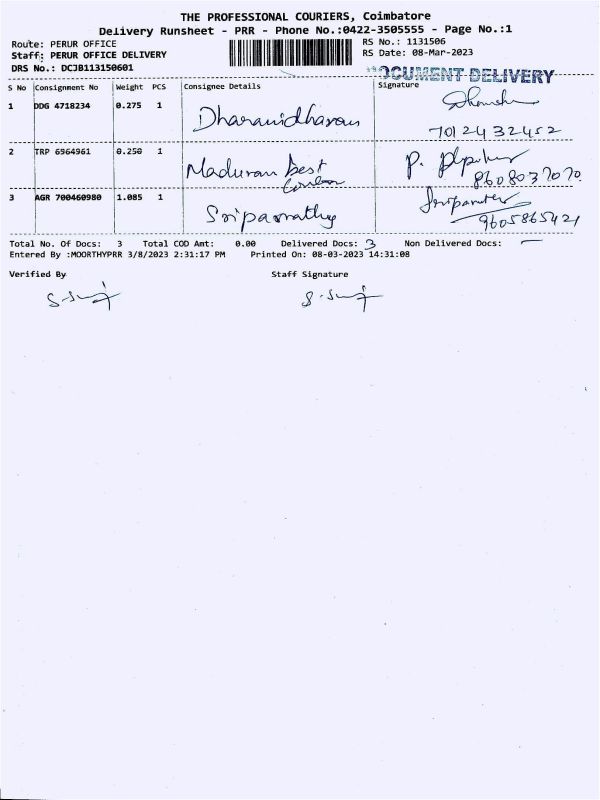 THE PROFESSIONAL COURIERS, Coimbatore
Delivery Runsheet - PRR - Phone No.:0422-3505555 - Page No.:1
Route: PERUR OFFICE RS No.: 1131506
Staff: PERUR OFFICE DELIVERY RS Date: 08-Mar-2023
DRS No.: DCJB113150601
DOCUMENT DELIVERY
S No Consignment No Weight PCS Consignee Details Signature
1 DDG 4718234 0.275 1 Dharanidharan
7012432452
2 TRP 6964961 0.250 1 P.
8608037070
3 AGR 700460980 1.085 1 Sriparvathy
9605865421
Total No. Of Docs: 3 Total COD Amt: 0.00 Delivered Docs: 3 Non Delivered Docs: —
Entered By :MOORTHYPRR 3/8/2023 2:31:17 PM Printed On: 08-03-2023 14:31:08
Verified By Staff Signature